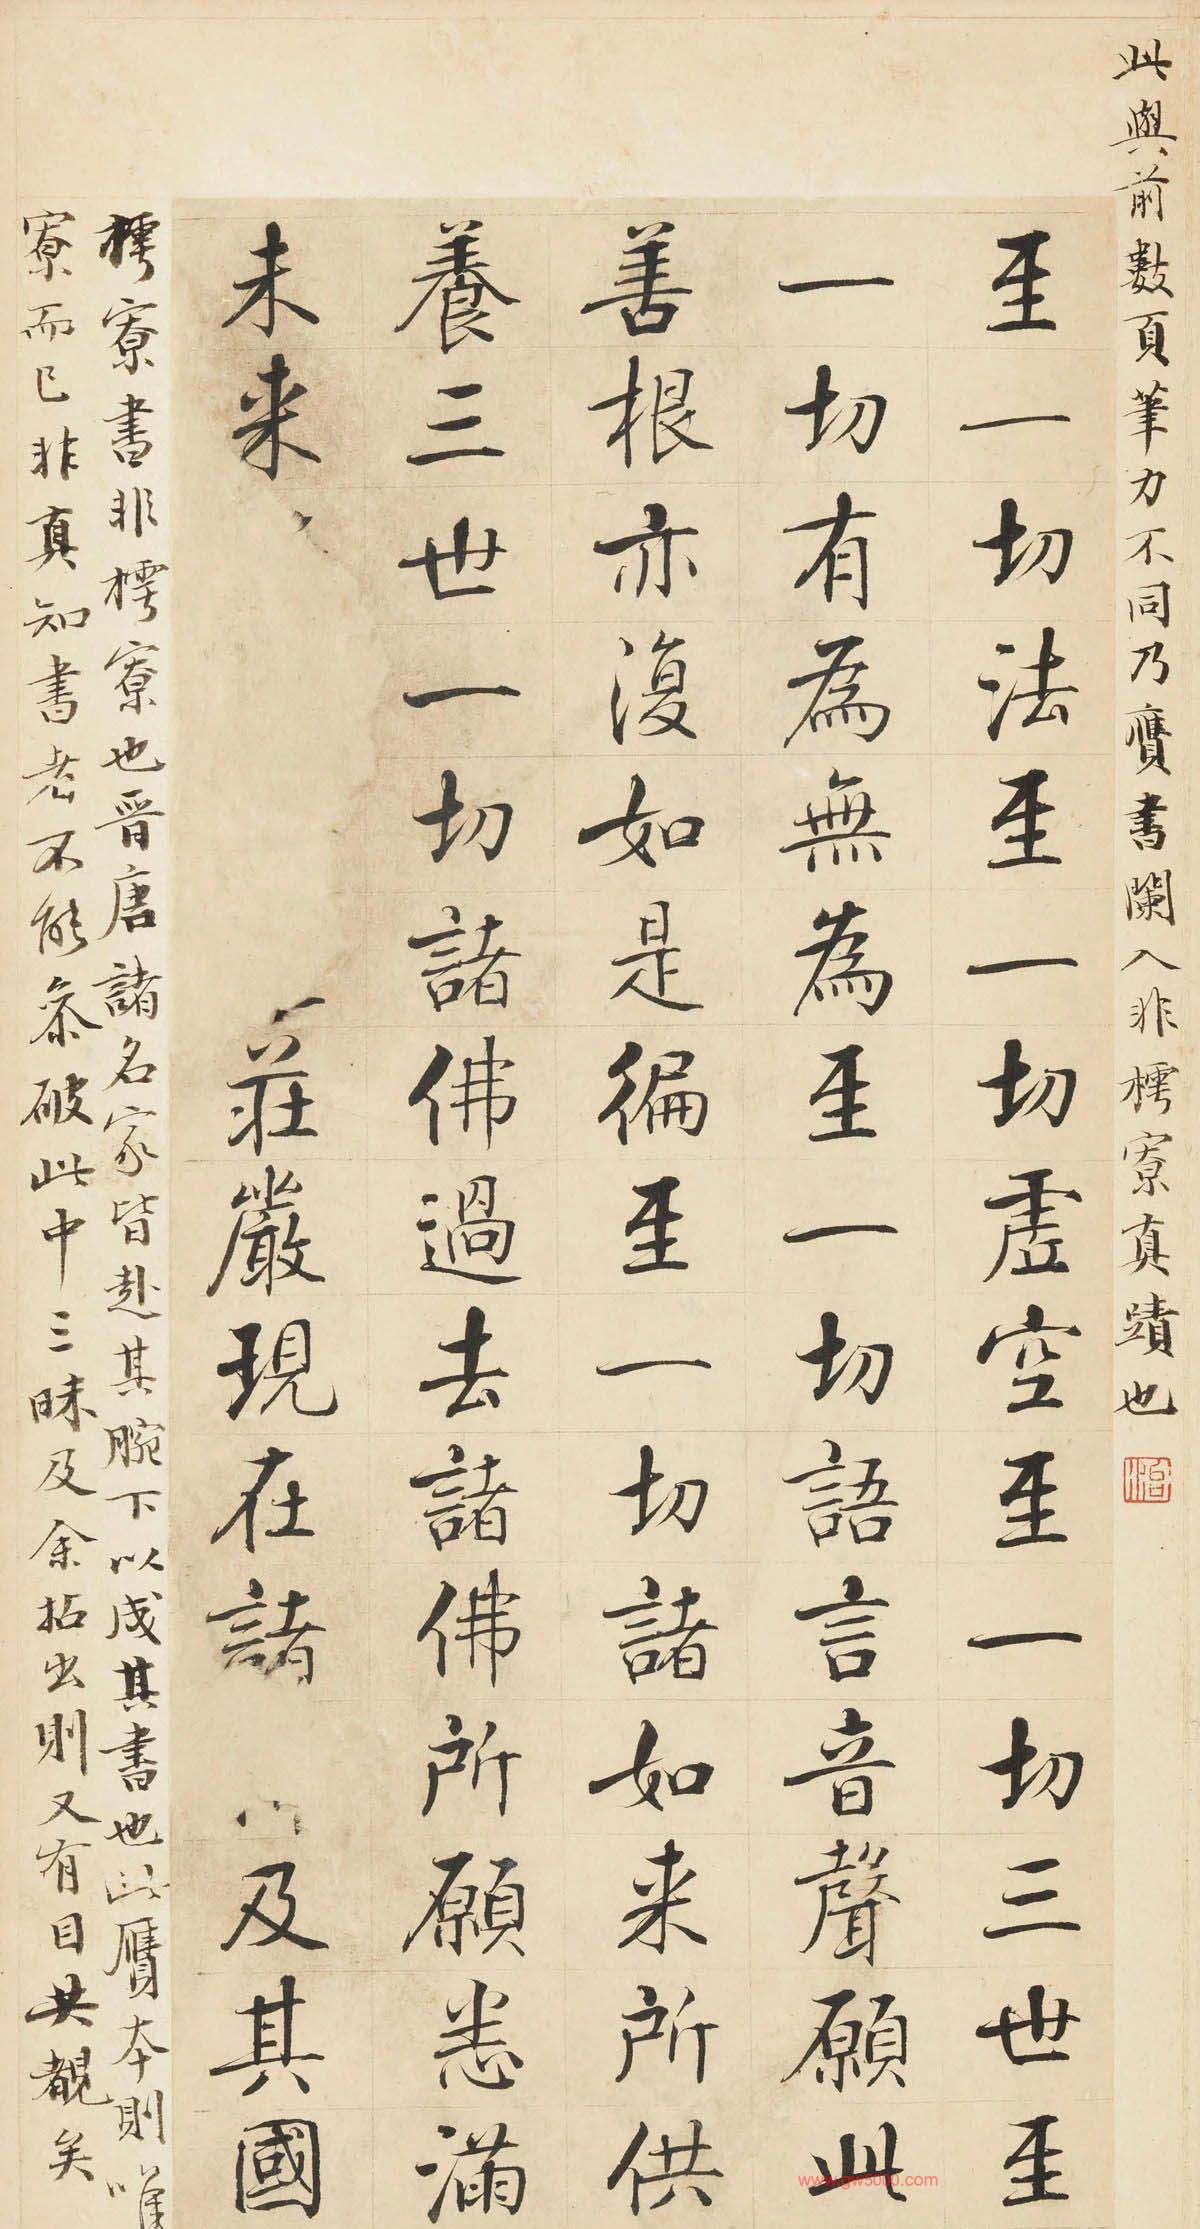 此與前數頁筆力不同乃賡書闌入非樗寮真蹟也
至一切法至一切虛空至一切三世至
一切有為無為至一切語言音聲願此
善根亦復如是徧至一切諸如來所供
養三世一切諸佛過去諸佛所願悉滿
未来 莊嚴現在諸 及其國
樗寮書非樗寮也晉唐諸名家皆赴其腕下以成其書也此贗本則唯
寮而已非真知書者不能叅破此中三昧及余拈出則又有目共覩矣
www.gw5000.com